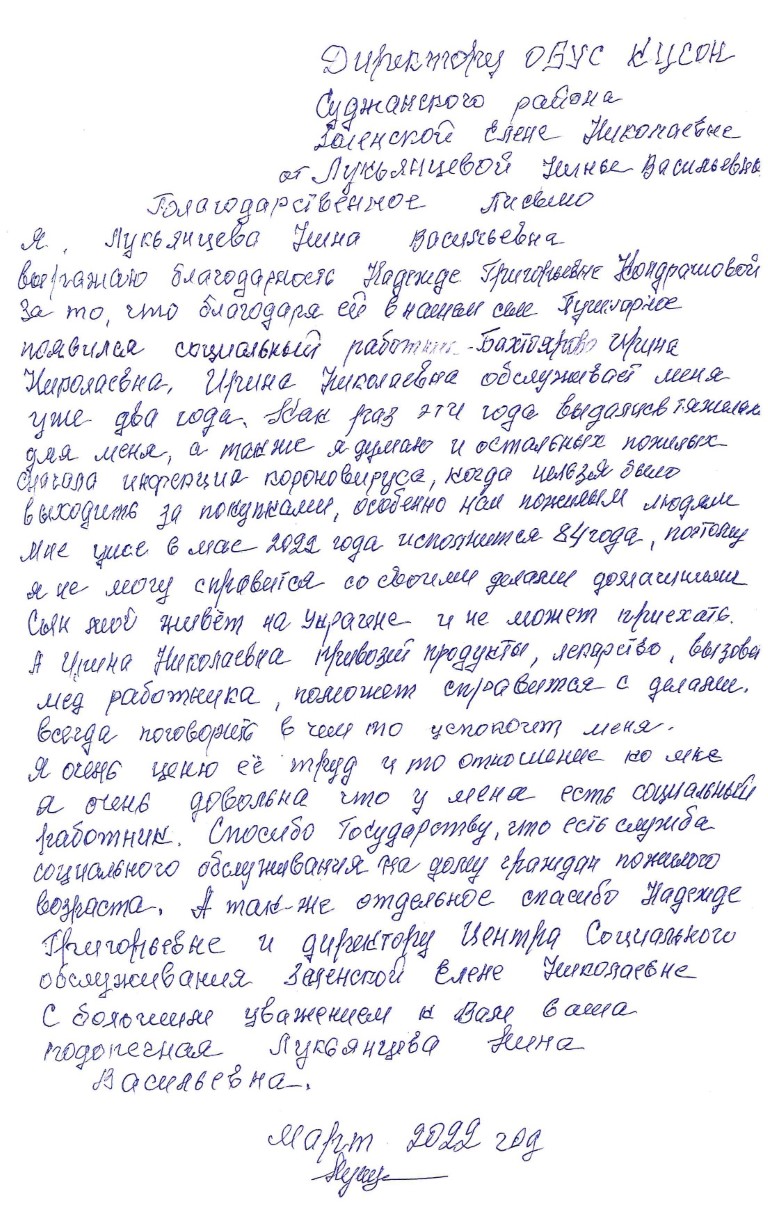 Директору ОБУС КЦСОН
Суджанского района
Заленской Елене Николаевне
от Лукьянцевой Нинье Васильевны
Благодарственное письмо
Я, Лукьянцева Нина Васильевна
выражаю благодарность Надежде Григорьевне Кондрашовой
За то, что благодаря ей в нашем селе Пушкарное
появился социальный работник Бахтоярова Ирина
Николаевна. Ирина Николаевна обслуживает меня
уже два года. Как раз эти года выдались тяжелыми
для меня, а также я думаю и остальных пожилых
сначала инфекция короновируса, когда нельзя было
выходить за покупками, особенно нам пожилым людям
Мне уже в мае 2022 года исполнится 84 года, поэтому
я не могу справится со своими делами домашними
Сын мой живёт на Украине и не может приехать.
А Ирина Николаевна привозит продукты, лекарство, вызовет
мед работника, поможет справится с делами.
всегда поговорит в чем то успокоит меня.
Я очень ценю её труд и то отношение ко мне
я очень довольна что у меня есть социальный
работник. Спосибо Государству, что есть служба
социального обслуживания на дому граждан пожилого
возраста. А так-же отдельное спасибо Надежде
Григорьевне и директору Центра Социального
обслуживания Заленской Елене Николаевне
С большим уважением к Вам ваша
подопечная Лукьянцева Нина
Васильевна.
Март 2022 год